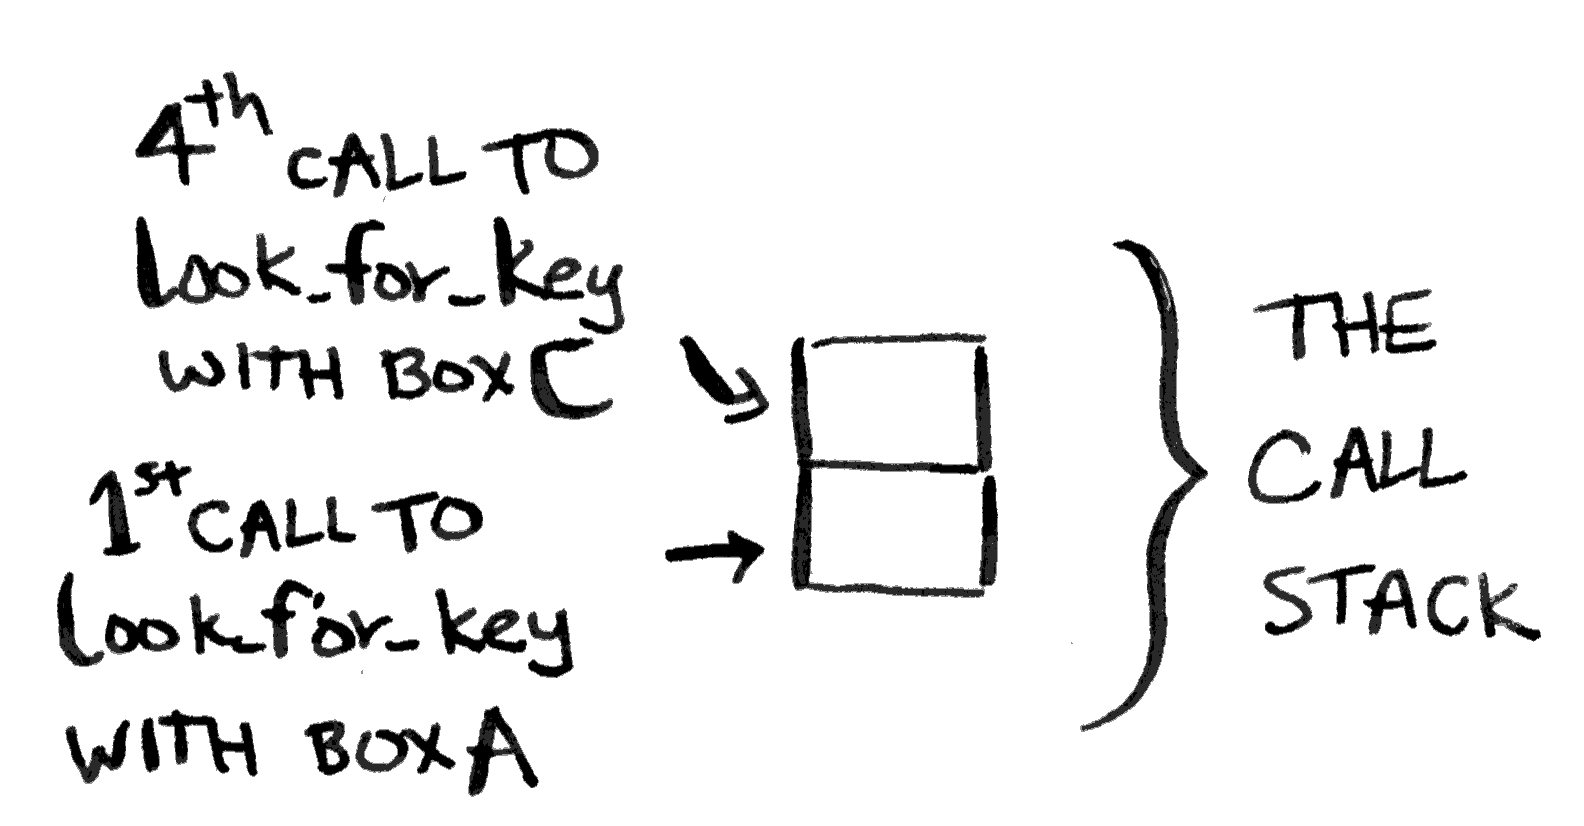 4th CALL TO
look_for_key
WITH BOX C
1st CALL TO
look_for_key
WITH BOX A
THE
CALL
STACK